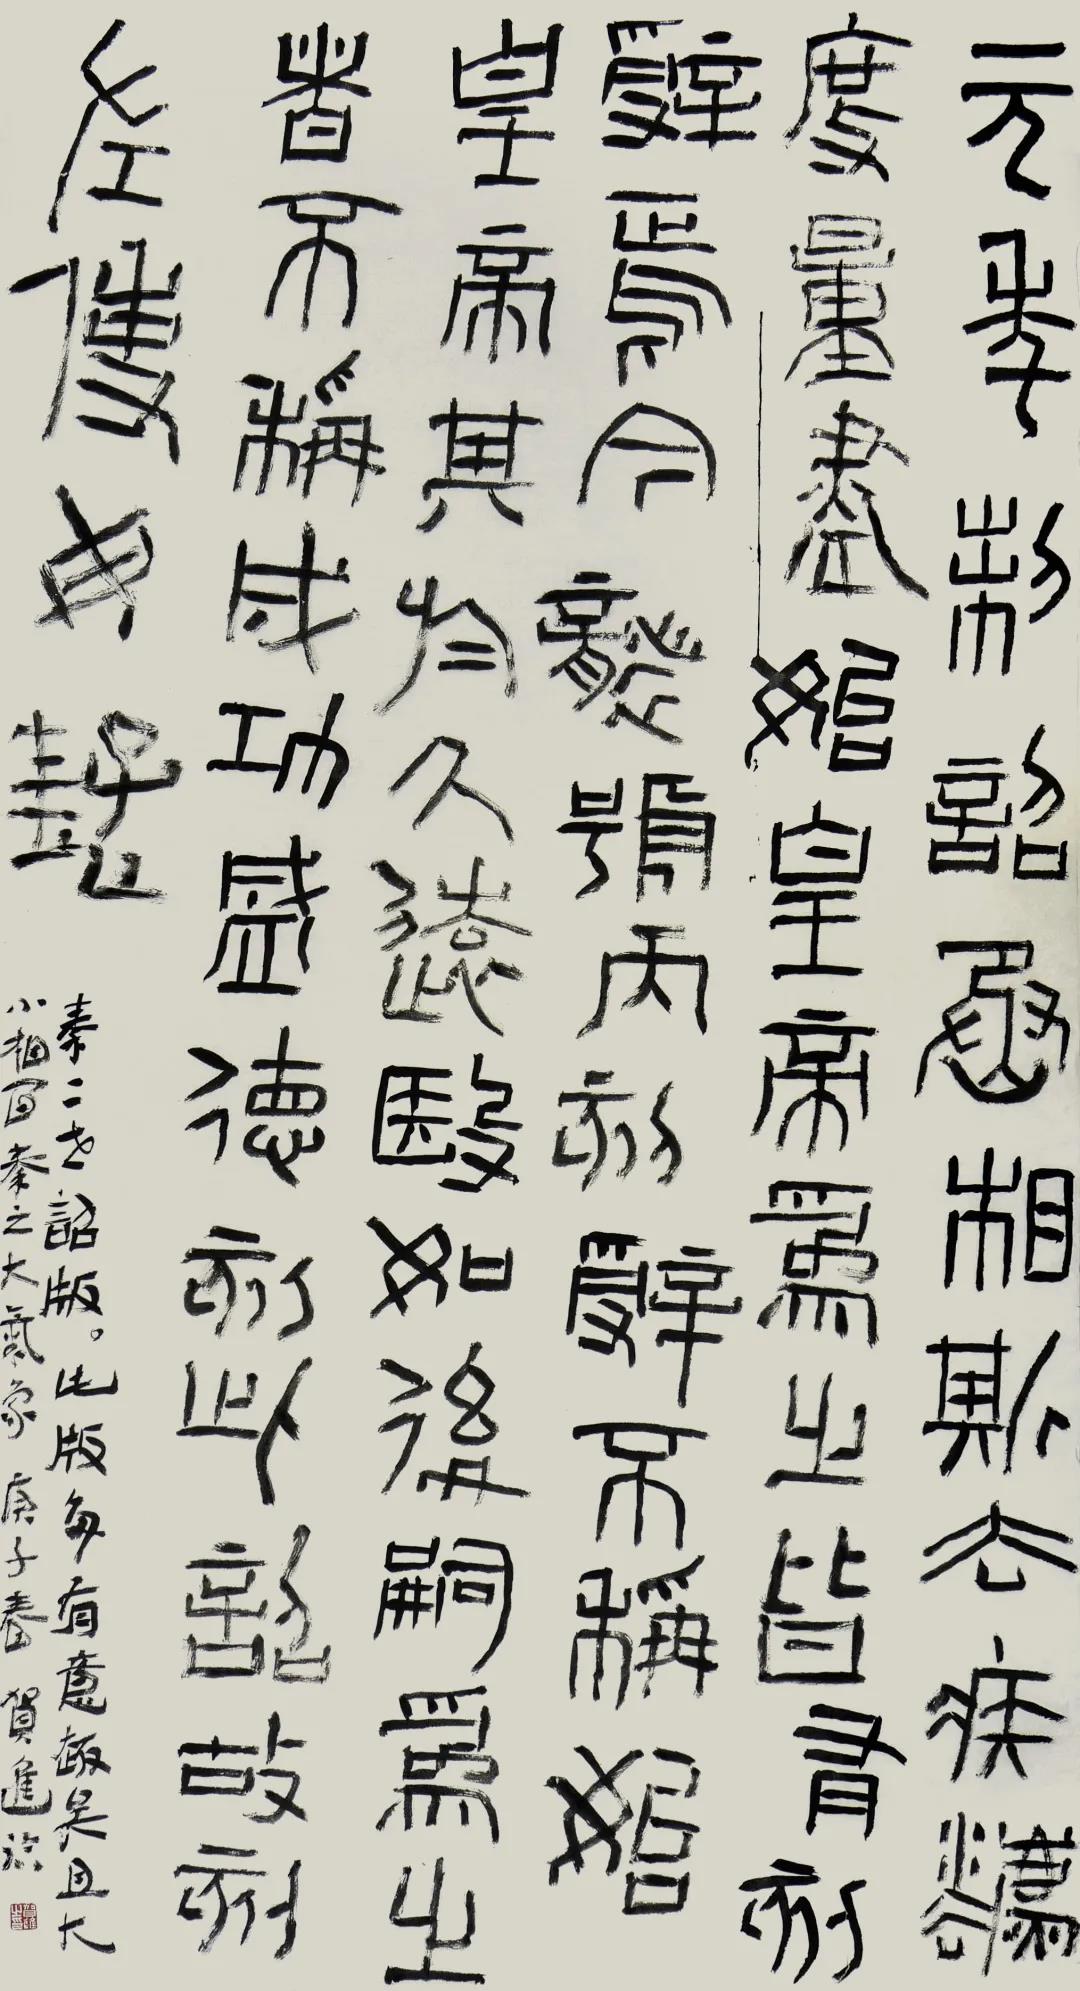 元年制詔丞相斯去疾灋
度量盡始皇帝爲之皆有刻
辭焉今襲號而刻辭不稱始
皇帝其於久遠殹如後嗣爲之
者不稱成功盛德刻此詔故刻
左使毋疑
秦二世詔版。此版多有意趣吴且大
小相间秦之大氣象 庚子春 賀進